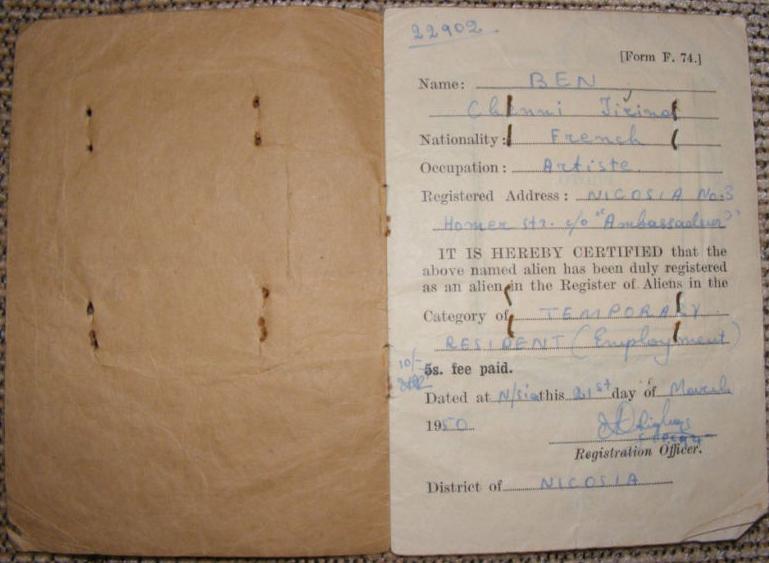 22902
[Form F. 74.]
Name: BEN
Nationality: French
Occupation: Artiste.
Registered Address: NICOSIA No: 3
Homer str. c/o "Ambassadeur"
IT IS HEREBY CERTIFIED that the
above named alien has been duly registered
as an alien in the Register of Aliens in the
Category of TEMPORARY
RESIDENT (Employment)
10/-
5s. fee paid.
Dated at N/sia this 21st day of March
1950
Registration Officer.
District of NICOSIA